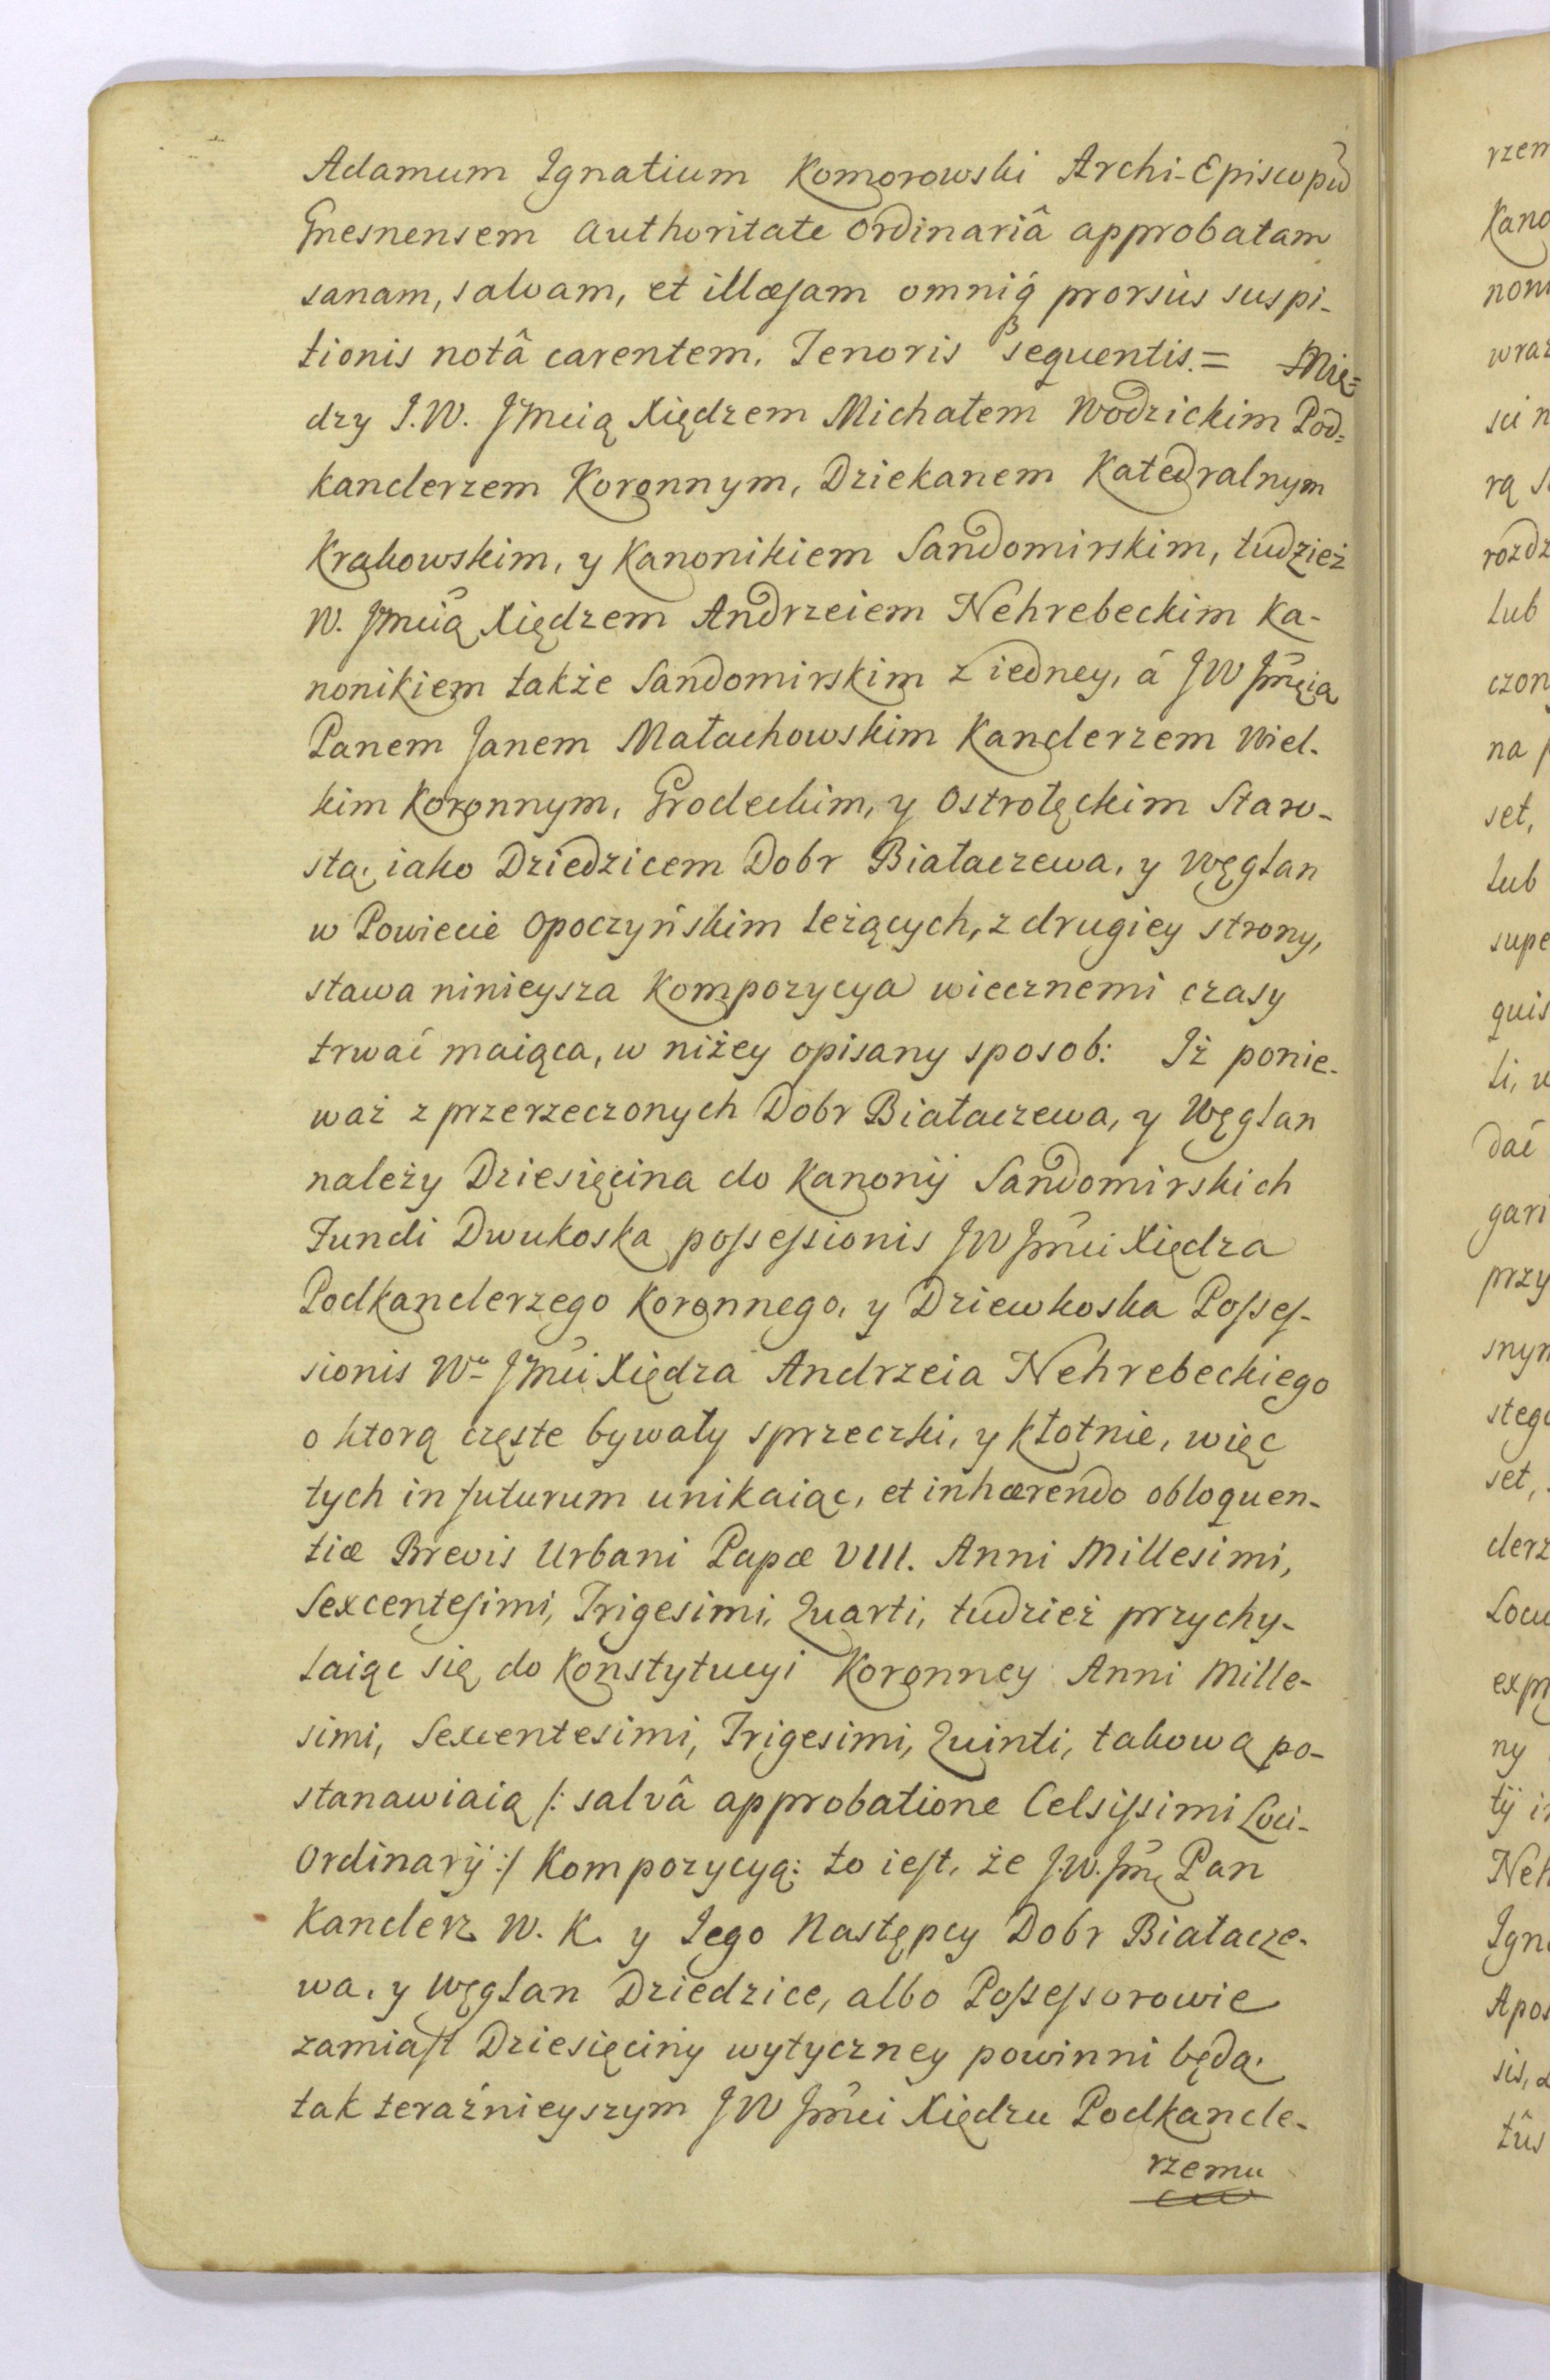 Adamum Ignatium Komorowski Archi-Episcopū
Gnesnensem Authoritate Ordinariâ approbatam
sanam, salvam, et illæsam omniq́ prorsùs suspi-
tionis notâ carentem. Tenoris sequentis. = Mię=
dzy J.W. Jmcią Xiędzem Michałem Wodzickim Pod=
kanclerzem Koronnym, Dziekanem Katedralnym
Krakowskim, y Kanonikiem Sandomirskim, tudzież
W. Jmcią Xiędzem Andrzeiem Nehrebeckim Ka-
nonikiem także Sandomirskim z iedney, á JW Jmcią
Panem Janem Małachowskim Kanclerzem Wiel-
kim Koronnym, Grodeckim, y Ostrołęckim Staro-
stą, iako Dziedzicem Dobr Białaczewa, y Węglan
w Powiecie Opoczyńskim leżących, z drugiey strony,
stawa ninieysza Kompozycya wiecznemi czasy
trwać maiąca, w niżey opisany sposob: Iż ponie-
waż z przerzeczonych Dobr Białaczewa, y Węglan
należy Dziesięcina do Kanonij Sandomirskich
Fundi Dwukoska possessionis JW Jmci Xiędza
Podkanclerzego Koronnego, y Dziewkoska Posses-
sionis Wo Jmci Xiędza Andrzeia Nehrebeckiego
o ktorą częste bywały sprzeczki, y kłotnie, więc
tych in futurum unikaiąc, et inhærendo obloquen-
tiæ Brevis Urbani Papæ VIII. Anni Millesimi,
Sexcentesimi, Trigesimi, Quarti, tudzież przychy-
laiąc się do Konstytucyi Koronney Anni Mille-
simi, Sexcentesimi, Trigesimi, Quinti, takową po-
stanawiaią /: salvâ approbatione Celsissimi Loci-
Ordinarij :/ Kompozycyą: to iest, że J.W. Jmć Pan
Kanclerz W. K. y Iego Następcy Dobr Białacze-
wa, y Węglan Dziedzice, albo Possessorowie
zamiast Dziesięciny wytyczney powinni będą,
tak teraźnieyszym JW Jmci Xiędzu Podkancle-
rzemu